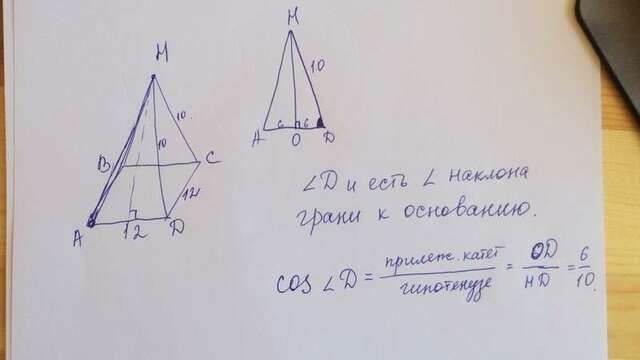 М
10
10
B
C
12
A
12
D
М
10
A
6
6
O
D
∠D и есть ∠ наклона
грани к основанию.
cos ∠D = прилеж. катет / гипотенузе = OD / МD = 6 / 10.